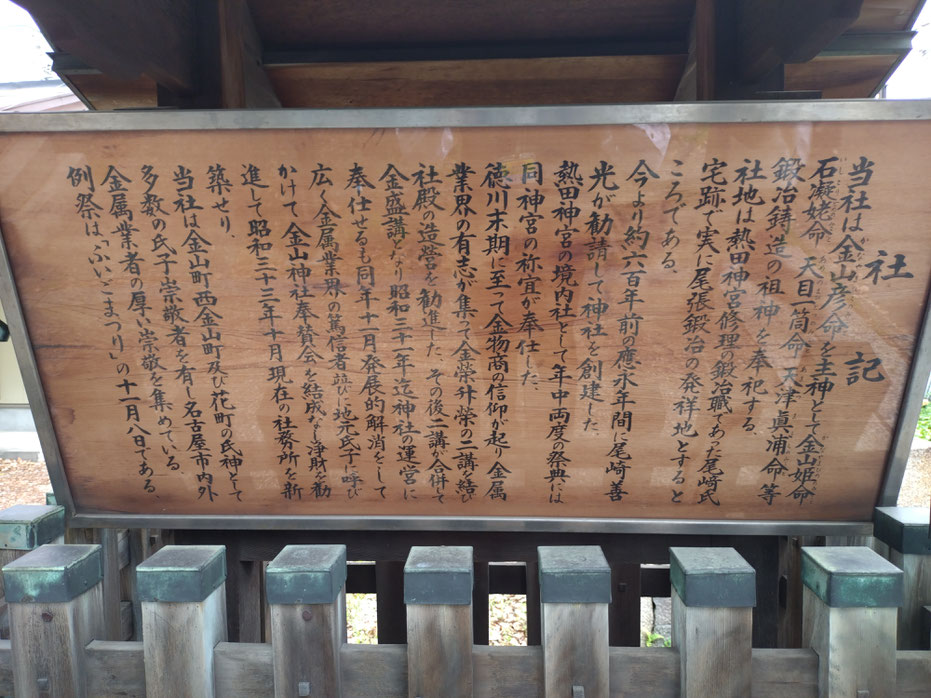 社記
当社は金山彦命を主神として金山姫命
石凝姥命 天目一箇命 天津眞浦命等
鍛冶鋳造の祖神を奉祀する。
社地は熱田神宮修理の鍛冶職であった尾﨑氏
宅跡で実に尾張鍛冶の発祥地とすると
ころである。
今より約六百年前の應永年間に尾崎善
光が勧請して神社を創建した。
熱田神宮の境内社として年中両度の祭典には
同神宮の祢宜が奉仕した。
徳川末期に至って金物商の信仰が起り金属
業界の有志が集って金榮舛榮の二講を結び
社殿の造営を勧進した。その後二講が合併して
金盛講となり昭和三十一年迄神社の運営に
奉仕せるも同年十一月発展的解消をして
広く金属業界の篤信者並びに地元氏子に呼び
かけて金山神社奉賛会を結成なし淨財を勧
進して昭和三十三年十月現在の社務所を新
築せり。
当社は金山町西金山町及び花町の氏神として
多数の氏子崇敬者を有し名古屋市内外
金属業者の厚い崇敬を集めている。
例祭は、「ふいごまつり」の十一月八日である。